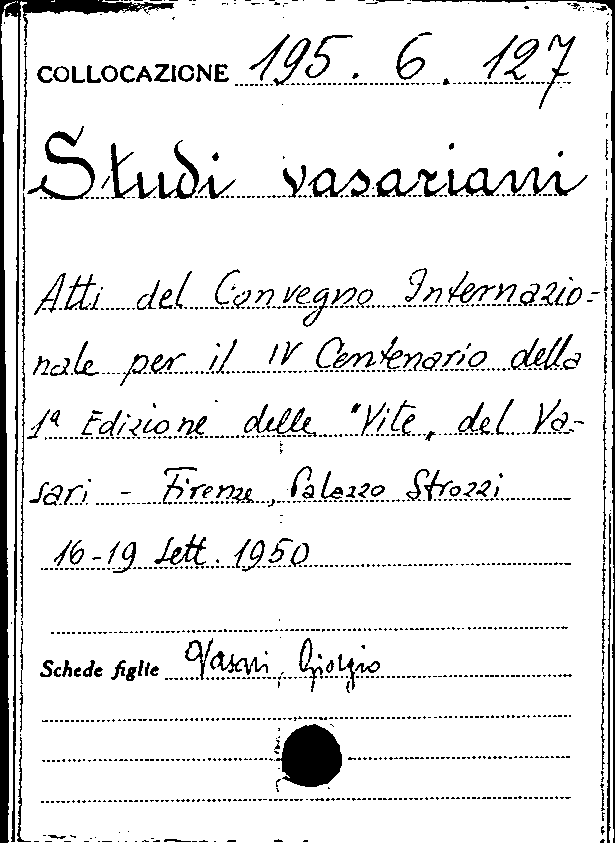 COLLOCAZIONE 195. 6. 127
Studi vasariani
Atti del Convegno Internazio=
nale per il IV Centenario della
1ª Edizione delle "Vite„ del Va-
sari - Firenze, Palazzo Strozzi
16-19 Sett. 1950
Schede figlie Vasari, Giorgio